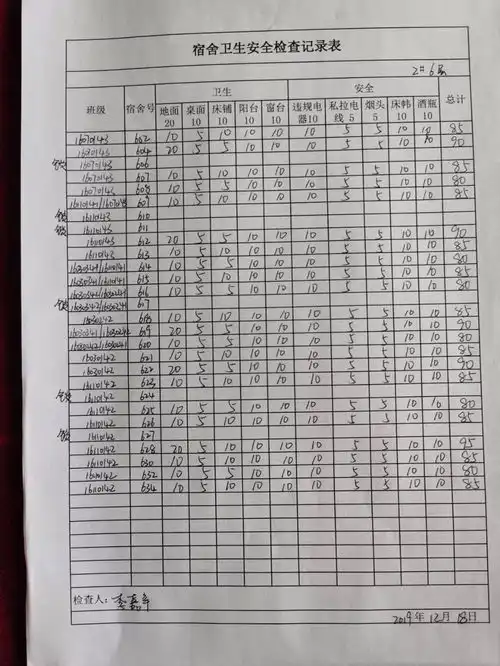 宿舍卫生安全检查记录表
2#6层
班级 宿舍号 卫生 安全 总计
地面20 桌面10 床铺10 阳台10 窗台10 违规电器10 私拉电线5 烟头5 床帏10 酒瓶10
16070143 602 10 5 10 10 10 10 5 5 10 10 85
604 20 5 5 10 10 10 5 5 10 10 90
16070143 606
16070143 607 10 5 10 10 10 10 5 5 10 10 85
16070143 608 10 5 5 10 10 10 5 5 10 10 80
10 5 10 10 10 10 5 5 10 10 85
16110143 610
16110143 611
16110143 612 20 5 5 10 10 10 5 5 10 10 90
16110143 613 10 5 10 10 10 10 5 5 10 10 85
614 10 5 5 10 10 10 5 5 10 10 80
615 10 5 10 10 10 10 5 5 10 10 85
616 10 5 5 10 10 10 5 5 10 10 80
617
16030142 618 10 5 10 10 10 10 5 5 10 10 85
619 20 5 5 10 10 10 5 5 10 10 90
620 10 5 5 10 10 10 5 5 10 10 80
16030142 621 10 5 10 10 10 10 5 5 10 10 85
16030142 622 20 5 5 10 10 10 5 5 10 10 90
16110142 623 10 5 10 10 10 10 5 5 10 10 85
16110142 624
16110142 625 10 5 5 10 10 10 5 5 10 10 80
16110142 626 10 5 5 10 10 10 5 5 10 10 80
16110142 627
16110142 628 20 5 10 10 10 10 5 5 10 10 95
16110142 630 10 5 10 10 10 10 5 5 10 10 85
632 10 5 5 10 10 10 5 5 10 10 80
16110142 634 10 5 10 10 10 10 5 5 10 10 85
检查人：
2019年12月18日